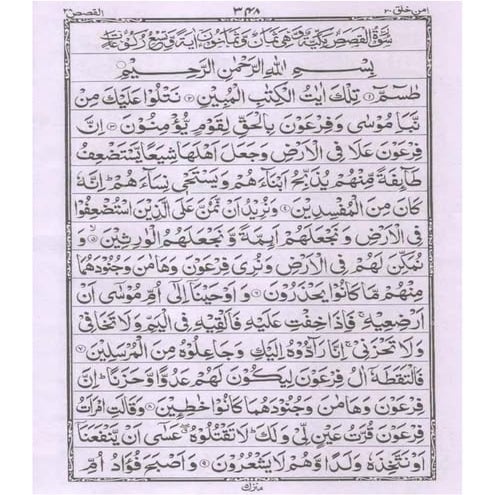 امن خلق ٢٠ ٣٤٨ القصص ٢٨
سورة القصص مكية وهي ثمان وثمانون آية وتسع ركوعات
بِسْمِ اللهِ الرَّحْمٰنِ الرَّحِيْمِ
طٰسٓمّٓ ﴿١﴾ تِلْكَ اٰيٰتُ الْكِتٰبِ الْمُبِيْنِ ﴿٢﴾ نَتْلُوْا عَلَيْكَ مِنْ
نَّبَاِ مُوْسٰى وَفِرْعَوْنَ بِالْحَقِّ لِقَوْمٍ يُّؤْمِنُوْنَ ﴿٣﴾ اِنَّ
فِرْعَوْنَ عَلَا فِى الْاَرْضِ وَجَعَلَ اَهْلَهَا شِيَعًا يَّسْتَضْعِفُ
طَآئِفَةً مِّنْهُمْ يُذَبِّحُ اَبْنَآءَهُمْ وَيَسْتَحْىٖ نِسَآءَهُمْ اِنَّهٗ
كَانَ مِنَ الْمُفْسِدِيْنَ ﴿٤﴾ وَنُرِيْدُ اَنْ نَّمُنَّ عَلَى الَّذِيْنَ اسْتُضْعِفُوْا
فِى الْاَرْضِ وَنَجْعَلَهُمْ اَئِمَّةً وَّنَجْعَلَهُمُ الْوٰرِثِيْنَ ﴿٥﴾ وَ
نُمَكِّنَ لَهُمْ فِى الْاَرْضِ وَنُرِىَ فِرْعَوْنَ وَهَامٰنَ وَجُنُوْدَهُمَا
مِنْهُمْ مَّا كَانُوْا يَحْذَرُوْنَ ﴿٦﴾ وَاَوْحَيْنَآ اِلٰٓى اُمِّ مُوْسٰٓى اَنْ
اَرْضِعِيْهِ فَاِذَا خِفْتِ عَلَيْهِ فَاَلْقِيْهِ فِى الْيَمِّ وَلَا تَخَافِىْ
وَلَا تَحْزَنِىْ اِنَّا رَآدُّوْهُ اِلَيْكِ وَجَاعِلُوْهُ مِنَ الْمُرْسَلِيْنَ ﴿٧﴾
فَالْتَقَطَهٗٓ اٰلُ فِرْعَوْنَ لِيَكُوْنَ لَهُمْ عَدُوًّا وَّحَزَنًا اِنَّ
فِرْعَوْنَ وَهَامٰنَ وَجُنُوْدَهُمَا كَانُوْا خٰطِـِٕيْنَ ﴿٨﴾ وَقَالَتِ امْرَاَتُ
فِرْعَوْنَ قُرَّتُ عَيْنٍ لِّىْ وَلَكَ لَا تَقْتُلُوْهُ عَسٰٓى اَنْ يَّنْفَعَنَآ
اَوْ نَتَّخِذَهٗ وَلَدًا وَّهُمْ لَا يَشْعُرُوْنَ ﴿٩﴾ وَاَصْبَحَ فُؤَادُ اُمِّ